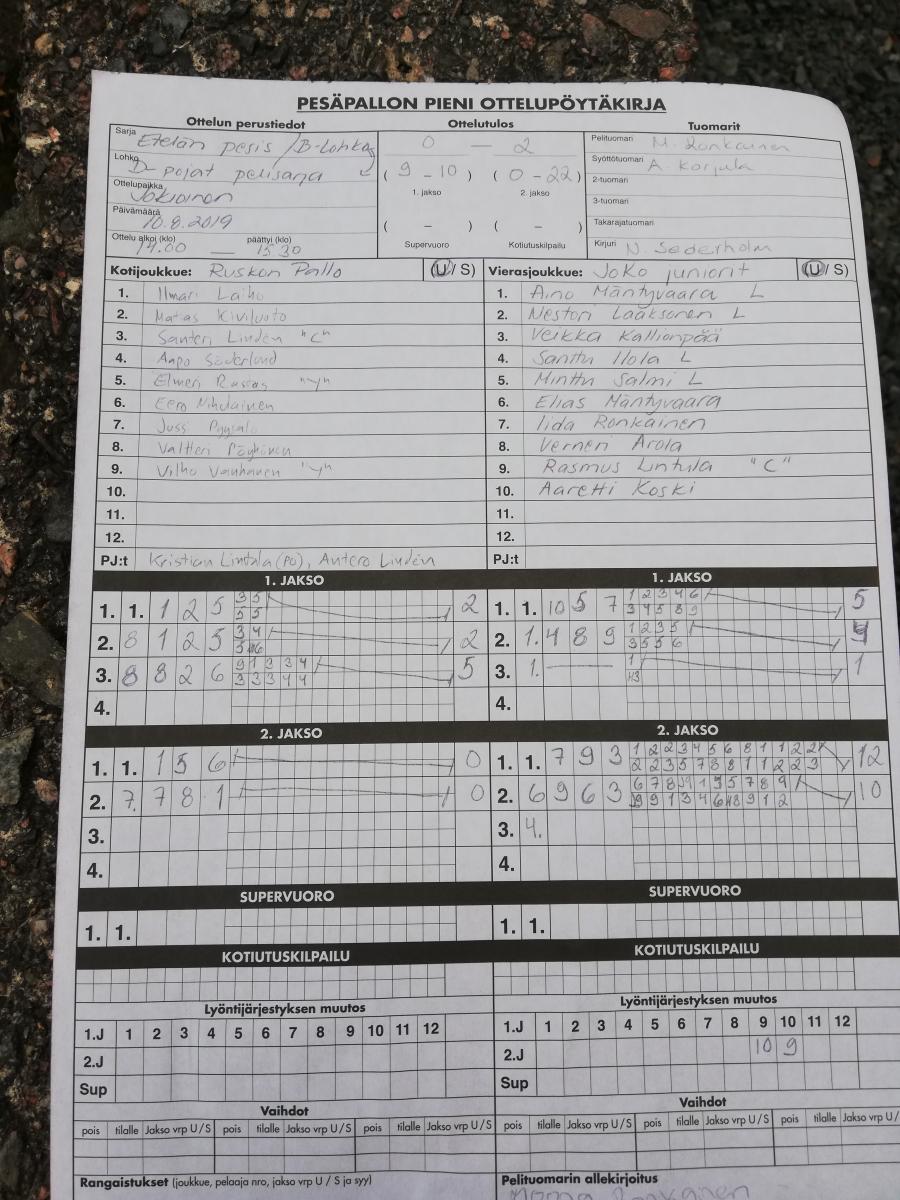 PESÄPALLON PIENI OTTELUPÖYTÄKIRJA
Ottelun perustiedot
Sarja Etelän pesis /B-Lohko
Lohko D-pojat pelisarja
Ottelupaikka Jokioinen
Päivämäärä 10.8.2019
Ottelu alkoi (klo) 14.00 — päättyi (klo) 15.30
Ottelutulos
0 — 2
( 9 - 10 ) ( 0 - 22 )
1. jakso 2. jakso
( - ) ( - )
Supervuoro Kotiutuskilpailu
Tuomarit
Pelituomari M. Ronkainen
Syöttötuomari A. Korjula
2-tuomari
3-tuomari
Takarajatuomari
Kirjuri N. Sederholm
Kotijoukkue: Ruskon Pallo (U / S)
1. Ilmari Laiho
2. Matias Kiviluoto
3. Santeri Lindén "C"
4. Aapo Söderlund
5. Elmeri Rastas "V"
6. Eero
7. Jussi
8. Valtteri Pöyhönen
9. Vilho Vanhanen "V"
10.
11.
12.
PJ:t Kristian Lintala (PJ), Antero Lindén
Vierasjoukkue: JoKo juniorit (U / S)
1. Aino Mäntyvaara L
2. Nestori Laaksonen L
3. Veikka Kallionpää
4. Santtu Ilola L
5. Minttu Salmi L
6. Elias Mäntyvaara
7. Iida Ronkainen
8. Verneri Arola
9. Rasmus Lintula "C"
10. Aaretti Koski
11.
12.
PJ:t
1. JAKSO
1. 1. 1 2 5 3 5 2
5 5
2. 8 1 2 5 3 4 2
3. 8 8 2 6 9 1 3 3 4 5
3 3 3 4 4
4.
1. JAKSO
1. 1. 10 5 7 1 2 3 4 6 5
3 4 5 8 9
2. 1. 4 8 9 1 2 3 5 4
3 5 5 6
3. 1. 1 1
4.
2. JAKSO
1. 1. 1 5 6 0
2. 7. 7 8 1 0
3.
4.
2. JAKSO
1. 1. 7 9 3 1 2 2 3 4 5 6 8 1 1 2 2 12
2 2 3 5 7 8 8 1 1 2 2 3
2. 6 9 6 3 10
3. 4.
4.
SUPERVUORO
1. 1.
SUPERVUORO
1. 1.
KOTIUTUSKILPAILU
KOTIUTUSKILPAILU
Lyöntijärjestyksen muutos
1.J 1 2 3 4 5 6 7 8 9 10 11 12
2.J
Sup
Lyöntijärjestyksen muutos
1.J 1 2 3 4 5 6 7 8 9 10 11 12
2.J 10 9
Sup
Vaihdot
pois tilalle Jakso vrp U / S pois tilalle Jakso vrp U / S pois tilalle Jakso vrp U / S
Vaihdot
pois tilalle Jakso vrp U / S pois tilalle Jakso vrp U / S pois tilalle Jakso vrp U /
Rangaistukset (joukkue, pelaaja nro, jakso vrp U / S ja syy)
Pelituomarin allekirjoitus